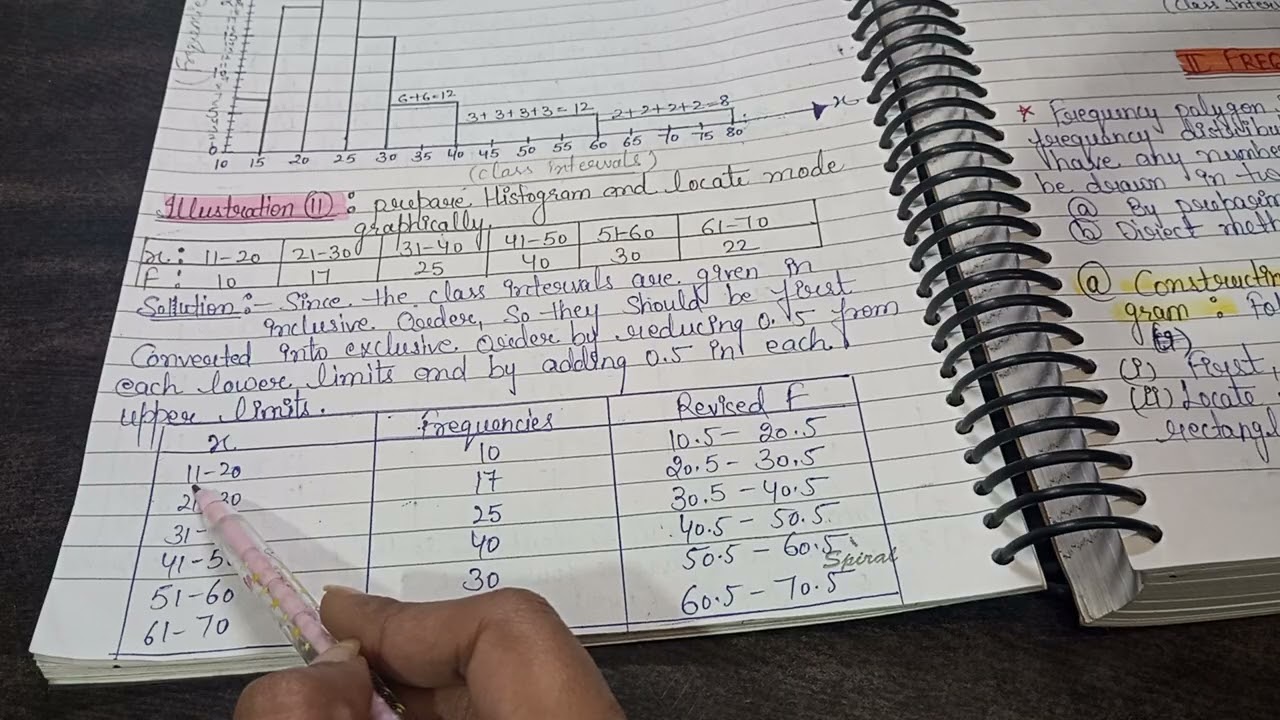 6+6=12
3+3+3+3=12
2+2+2+2=8
x
10 15 20 25 30 35 40 45 50 55 60 65 70 75 80
(class intervals)
Illustration (11) : prepare Histogram and locate mode
graphically.
x : 11-20 21-30 31-40 41-50 51-60 61-70
f : 10 17 25 40 30 22
Solution :- Since the class intervals are given in
inclusive Order, So they should be first
Converted into exclusive Order by reducing 0.5 from
each lower limits and by adding 0.5 in each
upper limits.
x Frequencies Revised F
11-20 10 10.5-20.5
21-30 17 20.5-30.5
31- 25 30.5-40.5
41-5 40 40.5-50.5
51-60 30 50.5-60.5
61-70 60.5-70.5
Spiral
(Class Inter
II FREQ
* Frequency polygon
frequency distribu
have any number
be drawn in tw
(a) By preparin
(b) Direct meth
(a) Constructin
gram : Fo
(i) First,
(ii) Locate
rectangl